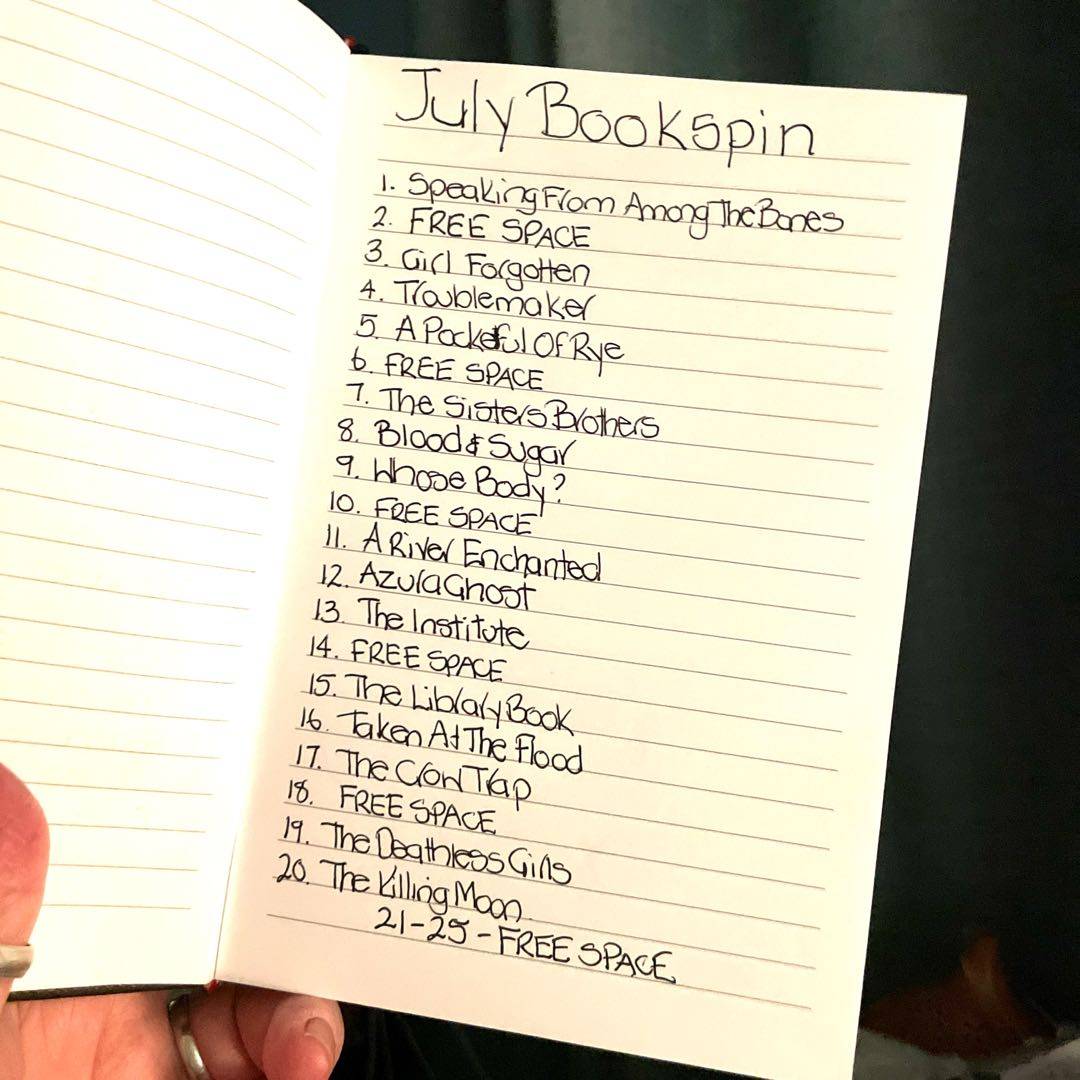 July Bookspin
1. Speaking From Among The Bones
2. FREE SPACE
3. Girl Forgotten
4. Troublemaker
5. A Pocketful Of Rye
6. FREE SPACE
7. The Sisters Brothers
8. Blood & Sugar
9. Whose Body?
10. FREE SPACE
11. A River Enchanted
12. Azura Ghost
13. The Institute
14. FREE SPACE
15. The Library Book
16. Taken At The Flood
17. The Crow Trap
18. FREE SPACE
19. The Deathless Girls
20. The Killing Moon
21-25 - FREE SPACE